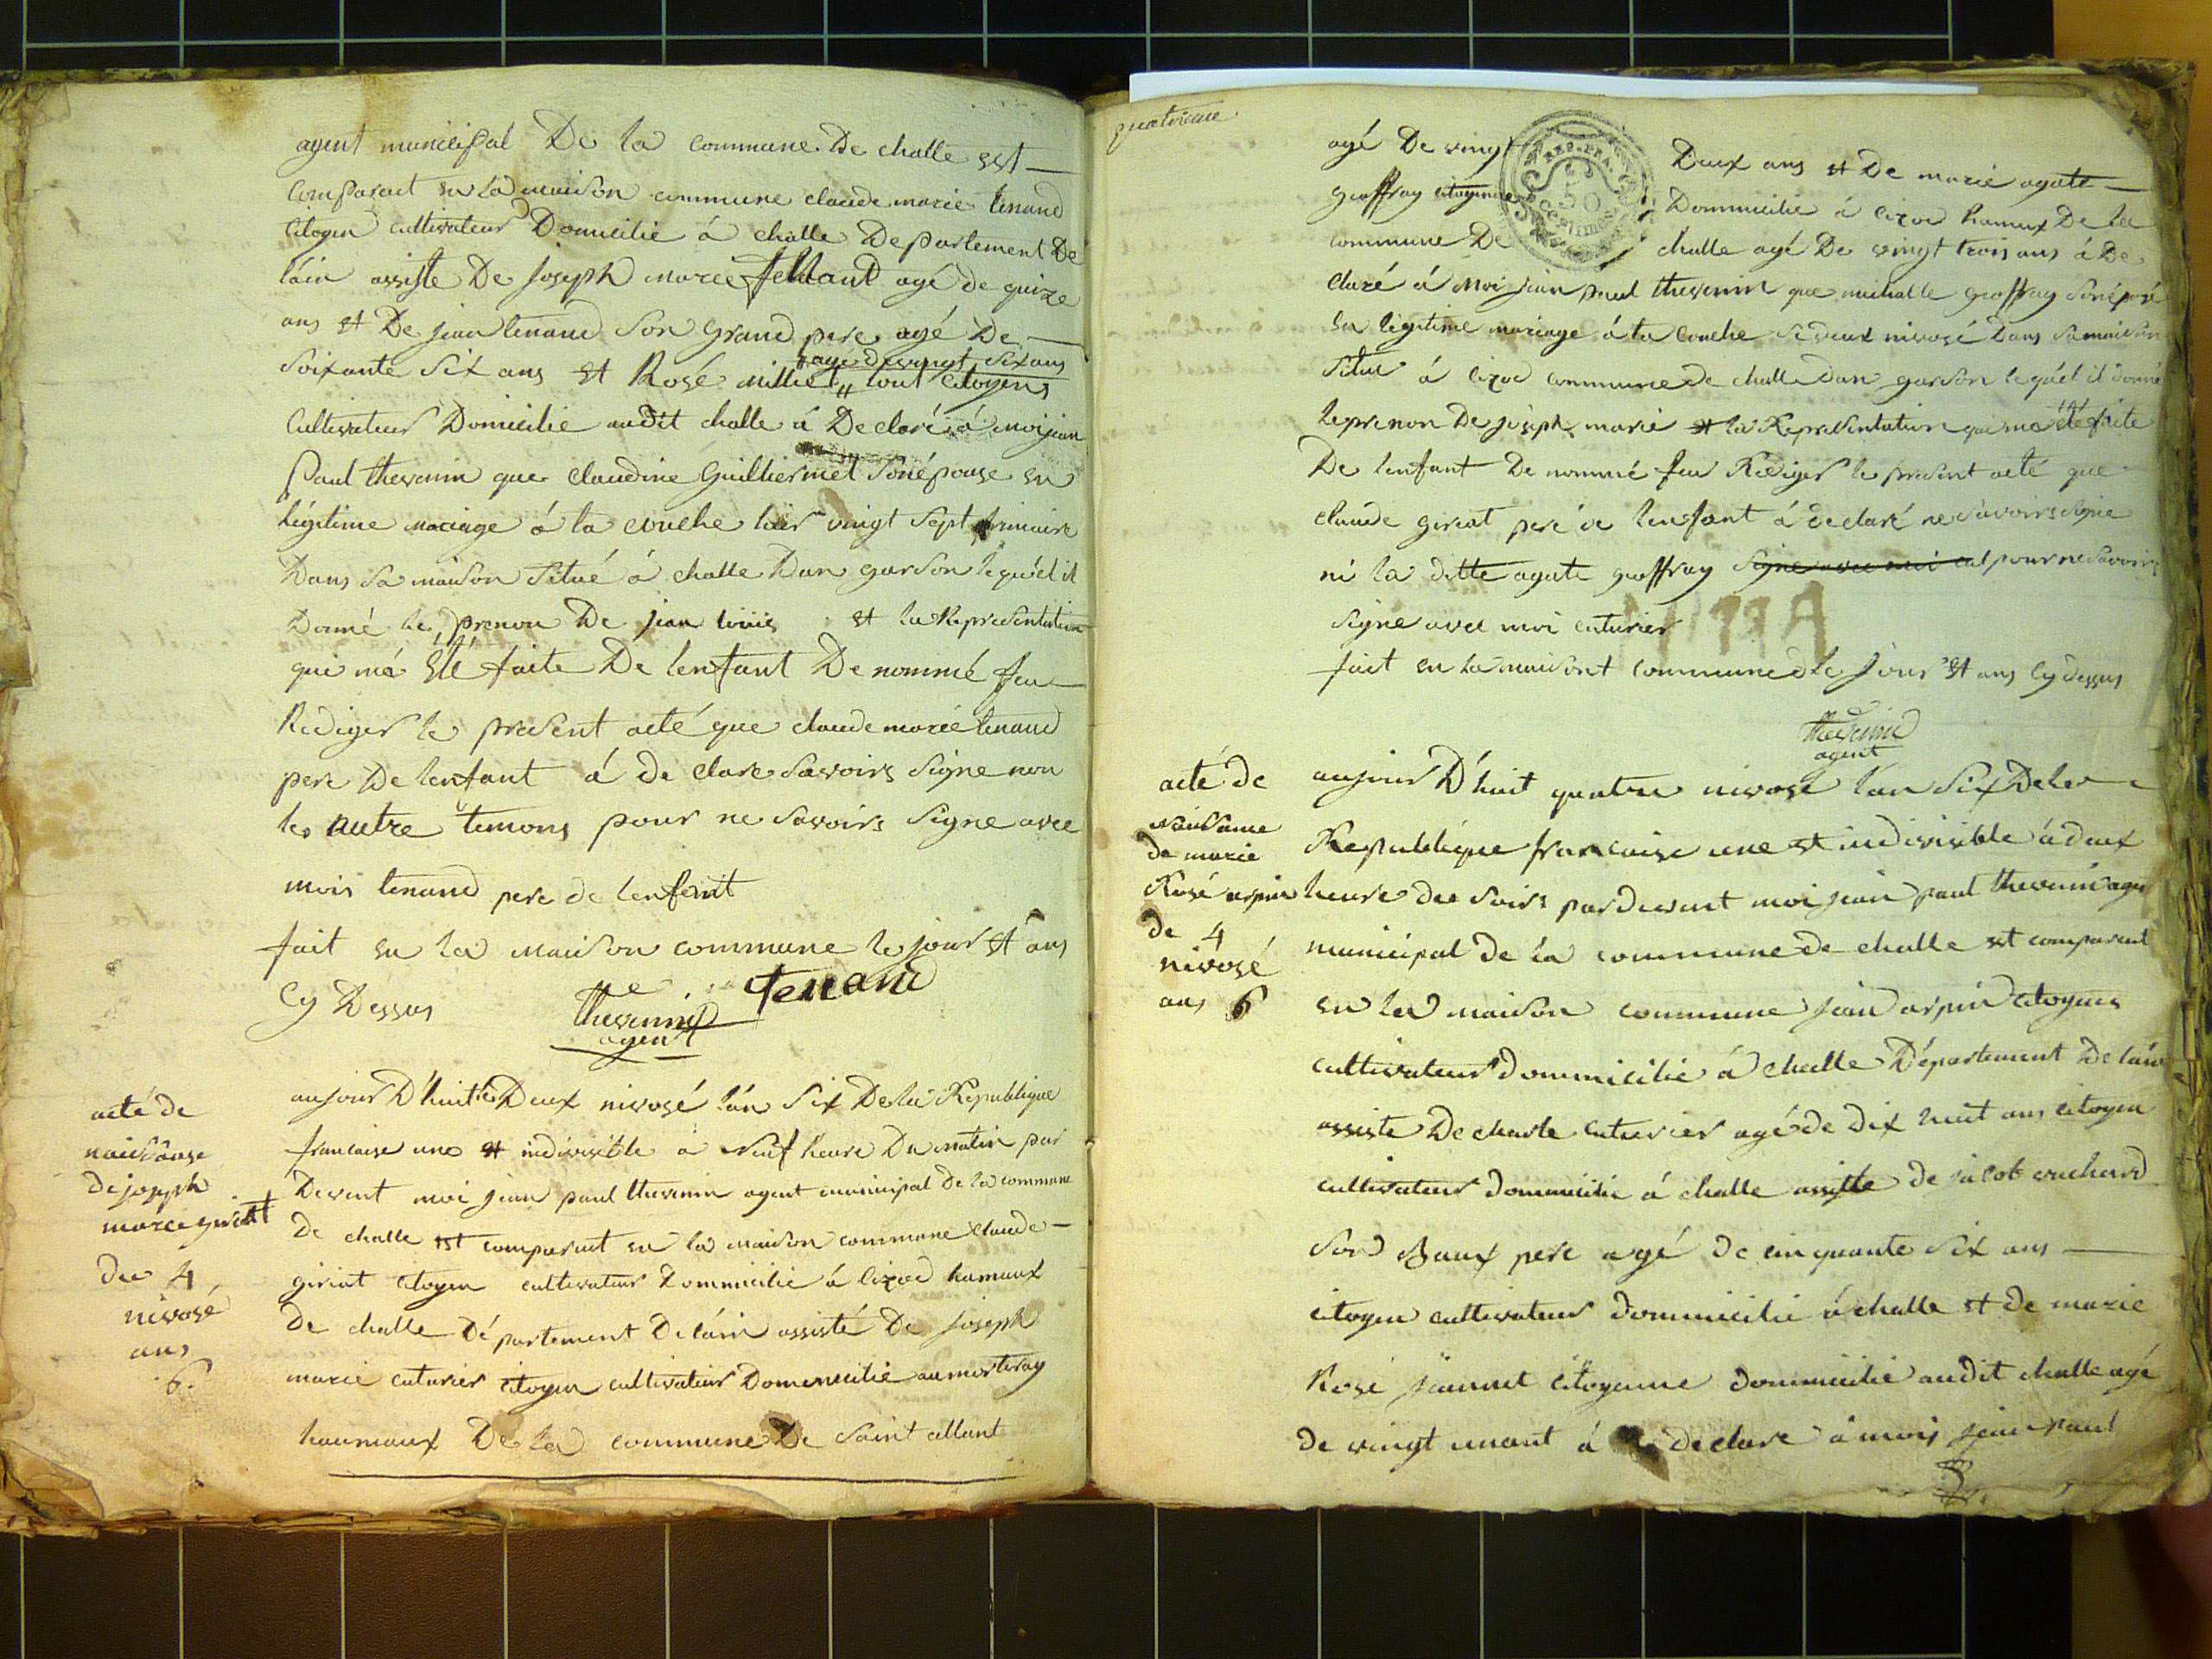 agent municipal De la commune De challe est
Comparent en la maison commune claude marie tenand
Citoyen cultivateur Domicilié á challe Departement De
láin assiste De Joseph marie tenand agé de quize
ans et De jean tenand son grand pere agé De
agé de vingt six ans
Soixante six ans et Rosé milliet tout citoyens
Cultivateur Domicilié audit challe á Declaré á moi jean
Paul thevenin que claudine Guilliermet sonépouse en
légitime mariage á ta couche hiér vingt sept frimaire
Dans sa maison situé á challe Dun garson lequél il
Donné le prenon De jean louis et la Representation
qui má été faite De lenfant De nommé feu
Rediger le present acté que claude marie tenand
pere De lenfant á de clare savoirs signe non
les autre temons pour ne savoirs signe avec
mois tenand pere de lenfent
fait en la maison commune le jour et ans
Cy Dessus
thevenin tenand
agent
acté de
naissanse
de joseph
marie giriat
du 4
nivosé
ans
6.
aujour D'huit le Deux nivosé lán six Dela Republique
francaise une et indivisible á neuf heure Du matin par
Devent moi jean paul thevenin agent municipal de la commune
De challe est comparent en la maison commune claude
giriat citoyen cultivateur Dommicilié á lizod hamaux
De challe Département De láin assisté De Joseph
marie cuturier citoyen cultivateur Domemicilié au mortaray
haumaux De la commune De saint allant
quatrieme
agé De vingt Deux ans et De marie agate
REP. FRA.
50
CENTIMES
geoffray citoyenne Dommicilie á lizod hamux De la
commune De challe agé De vingt trois ans á De
claré á Moi jean paul thevenin que michalle geoffray sonépose
en legitime mariage á ta couche le deux nivosé Dans sa maison
situé á lizod commune de challe dun garson lequél il donné
le prenon De joseph marie et la Representation qui má été faite
De lenfant De nommé feu Rediger le present acté que
claude giriat peré de lenfant á declaré ne savoirs signe
ni la ditte agate geoffray signe avec moi cut pour ne savoirs
signe avec moi cuturier
fait en la maisont commune le jour et ans Cy dessus
thevenin
agent
acté de
naissance
de marie
Rosé arpin
de 4
nivosé
ans 6
aujour D'huit quatre nivosé lán six De la
Republique francaise une et indivisible á deux
heure des soirs pardevent moi jean paul thevenin agen
municipal de la commune de challe est comparent
en la maison commune jean arpin citoyens
cultivateur dommicilié á challe Département De láin
assiste De charle cuturier agé de dix huit ans citoyen
cultivateur dommicilié á challe assisté de jacob
son Baux pere agé de cinquante six ans
citoyen cultivateur dommicilié á challe et de marie
Rosé jeannet citoyenne dommicilié audit challe agé
de vingt unant á declare á mois jean paul